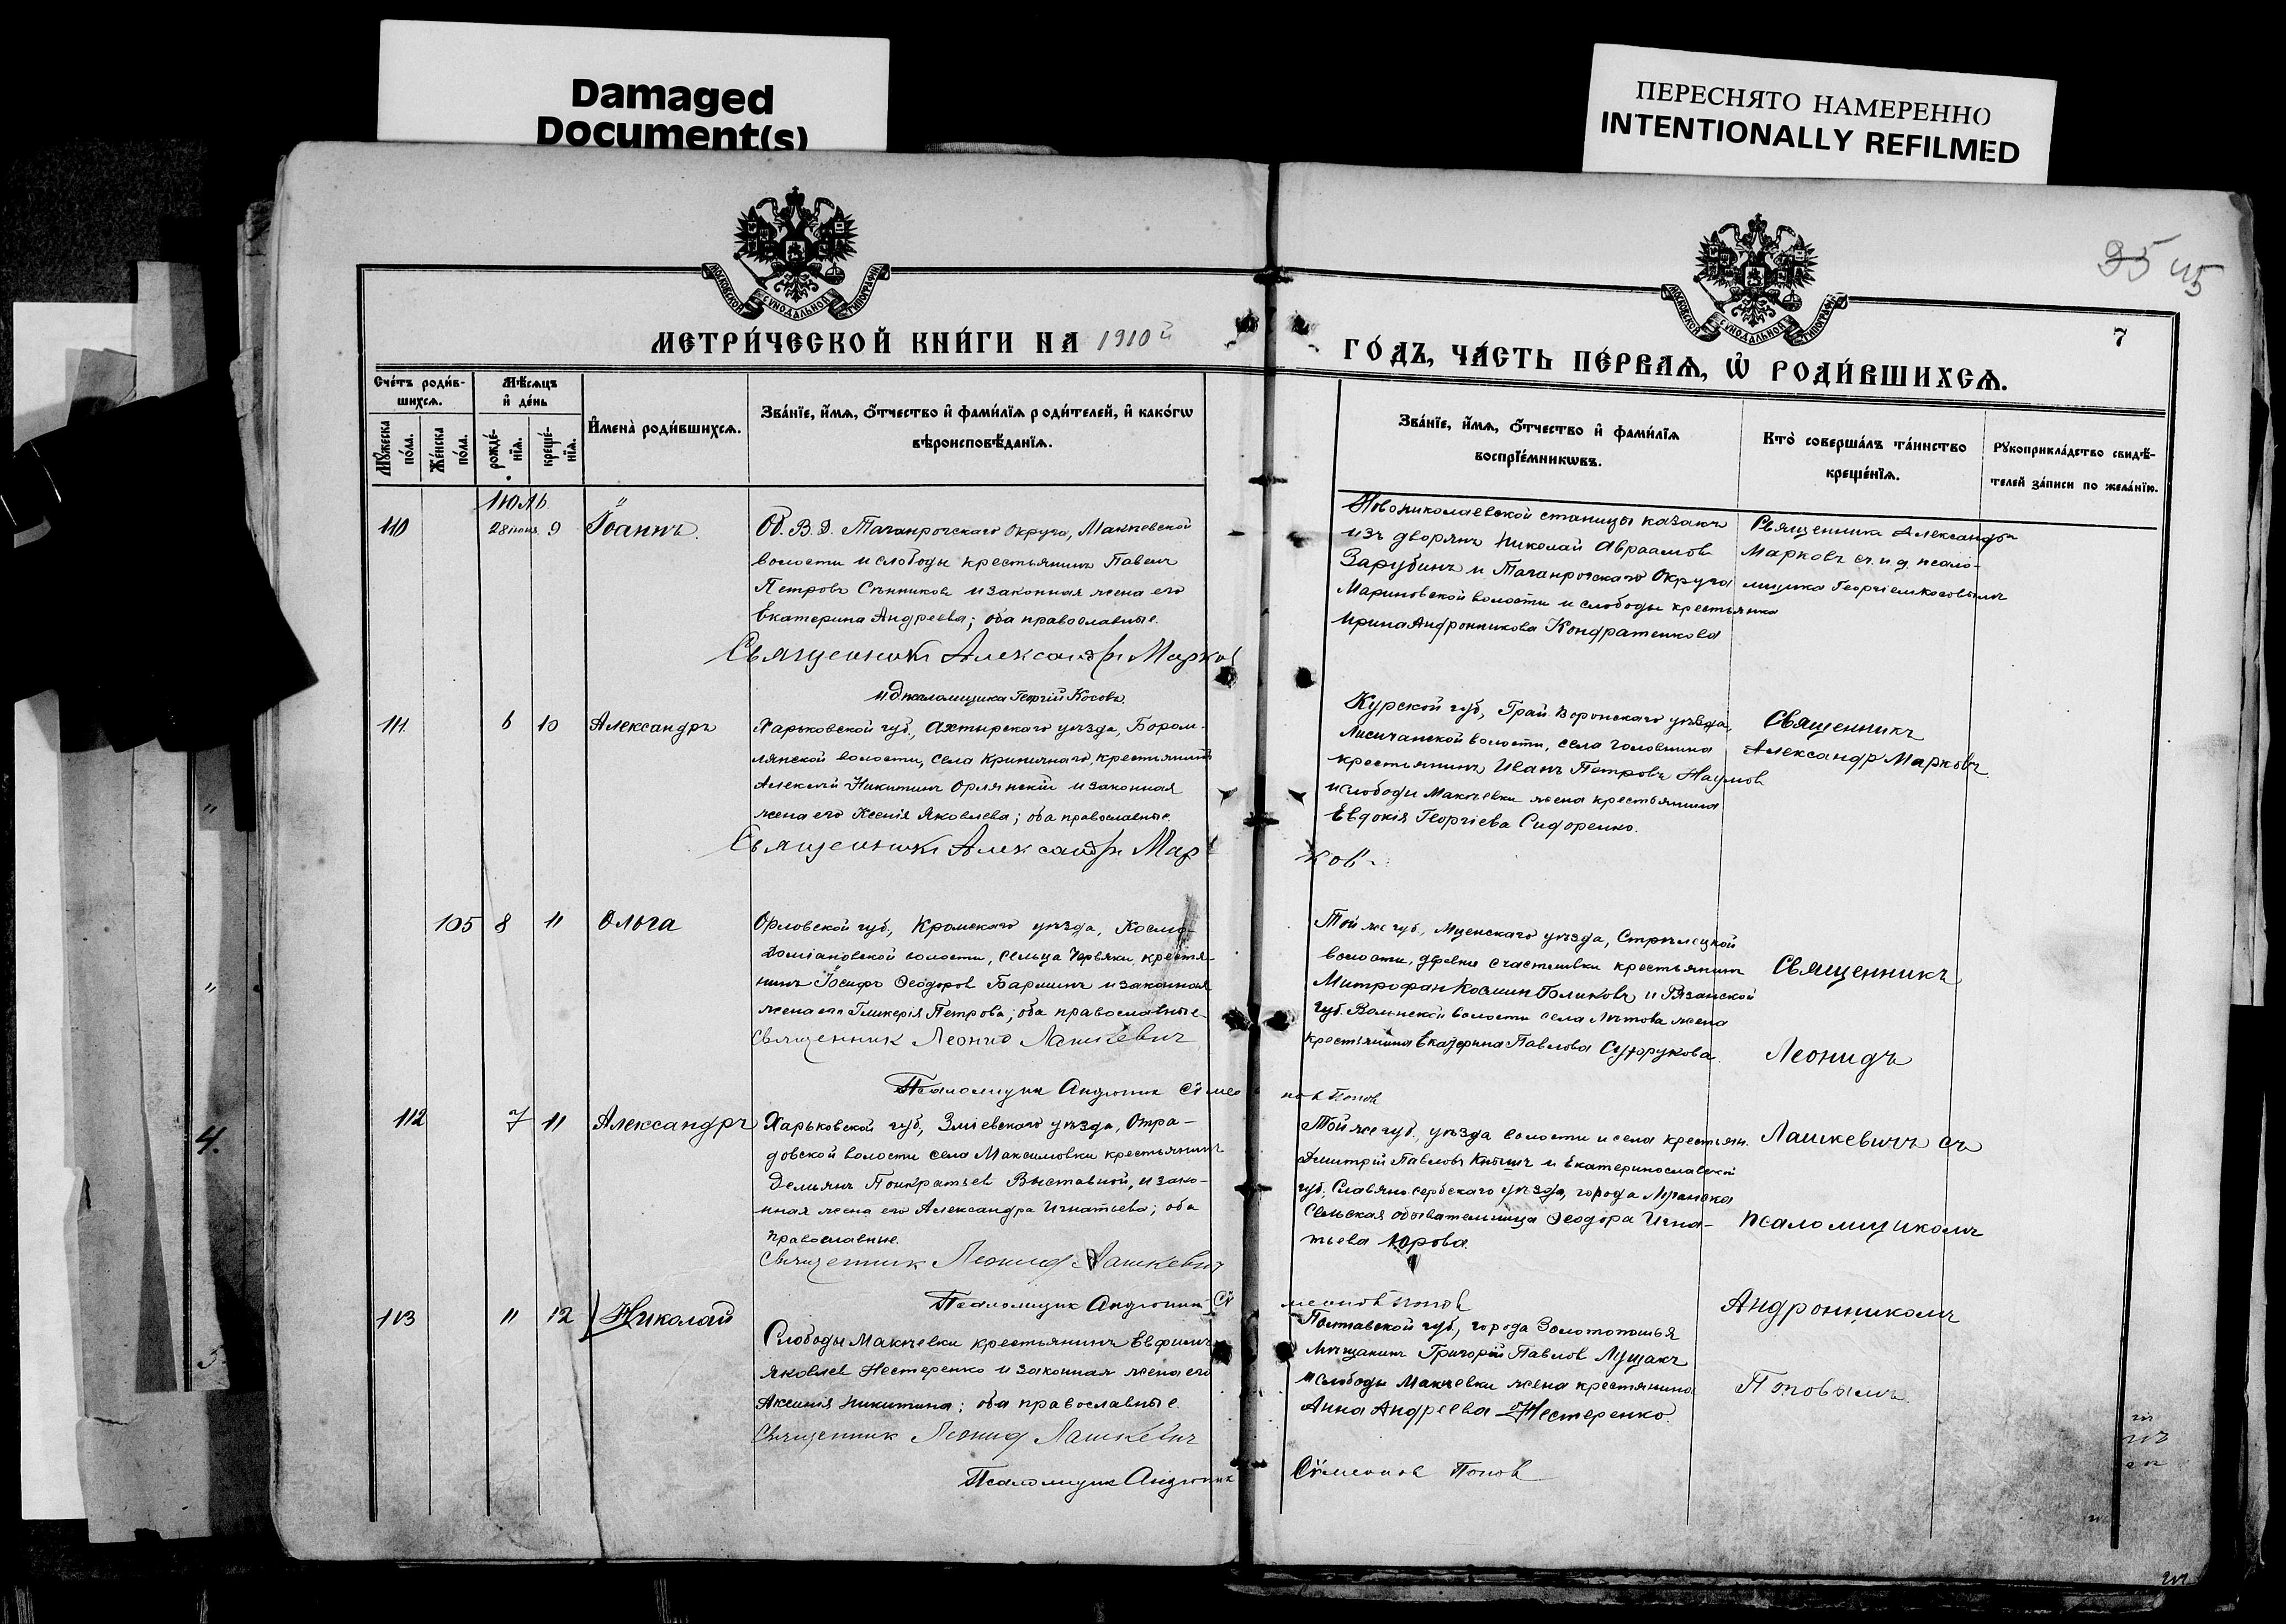 Damaged
Document(s)
ПЕРЕСНЯТО НАМЕРЕННО
INTENTIONALLY REFILMED
95 45
МОСКОВСКОЙ СѴНОДАЛЬНОЙ ТИПОГРАФІИ
МОСКОВСКОЙ СѴНОДАЛЬНОЙ ТИПОГРАФІИ
7
МЕТРИ́ЧЕСКОЙ КНИ́ГИ НА 1910й
ГО́ДЪ, ЧА́СТЬ ПЕ́РВАѦ, Ѽ РОДИ́ВШИХСѦ.
Сче́тъ роди́в-
шихсѧ.
Мѣ́сѧцъ
и҆ де́нь
Мꙋ́жеска
по́ла.
Же́нска
по́ла.
рожде́-
нїѧ.
креще́-
нїѧ.
И҆мена̀ роди́вшихсѧ.
Зва́нїе, и҆́мѧ, ѻ҆́тчество и҆ фами́лїѧ роди́телей, и҆ како́гѡ
вѣроисповѣ́данїѧ.
Зва́нїе, и҆́мѧ, ѻ҆́тчество и҆ фами́лїѧ
воспрїе́мникѡвъ.
Кто̀ соверша́лъ та́инство
креще́нїѧ.
Рꙋкоприкла́дство свидѣ́-
телей за́писи по жела́нїю.
Іюль
110 28 іюня 9 Іоаннъ.
Об. В. Д. Таганрогскаго Округа, Макѣевской
волости и слободы крестьянинъ Павелъ
Петровъ Сѣнниковъ и законная жена его
Екатерина Андреева; оба православные.
Священникъ Александръ Марковъ
и д псаломщика Георгій Косовъ.
Новониколаевской станицы казакъ
изъ дворянъ Николай Авраамовъ
Зарубинъ и Таганрогскаго Округа
Мариновской волости и слободы крестьянка
Ирина Андронникова Кондратенкова
Священникъ Александръ
Марковъ съ и.д. псало-
мщика Георгіемъ Косовымъ
111. 6 10 Александръ
Харьковской губ., Ахтырскаго уѣзда, Бором-
лянской волости, села Криничнаго, крестьянинъ
Алексѣй Никитинъ Орлянскій и законная
жена его Ксенія Яковлева; оба православные.
Священникъ Александръ Мар
ковъ.
Курской губ., Грайворонскаго уѣзда,
Лисичанской волости, села Головчина
крестьянинъ Иванъ Петровъ Наумов
и слободы Макѣевки жена крестьянина
Евдокія Георгіева Сидоренко.
Священникъ
Александръ Марковъ
105 8 11 Ольга
Орловской губ., Кромскаго уѣзда, Космо-
Даміановской волости, сельца Червяки, крестья-
нинъ Іосифъ Ѳеодоров Бармин и законная
жена его Гликерія Петрова; оба православные
Священник Леонид Лашкевич
Псаломщик Андроник Симео
нов Попов
Той же губ., Мценскаго уѣзда, Стрѣлецкой
волости, деревни Счастливки крестьянинъ
Митрофан Космин Голиковъ и Рязанской
губ. волости села жена
крестьянина Екатерина Павлова
Священникъ
Леонидъ
112 7 11 Александръ
Харьковской губ., Зміевскаго уѣзда, Отра-
довской волости села Максимовки крестьянинъ
Демьянъ Понкратьев Выставной, и зако-
нная жена его Александра Игнатьева; оба
православные.
Священник Леонид Лашкевич
Псаломщик Андроник Си
меонов Попов
Той же губ., уѣзда волости и села крестьян.
Дмитрій Павловъ и Екатеринославской
губ., Славяносербскаго уѣзда, города Луганска
сельская обывательница Ѳеодора Игна-
тьева Юрова.
Лашкевичъ съ
псаломщикомъ
113 11 12 Николай
Слободы Макѣевки крестьянинъ Евфимъ
Яковлев Нестеренко и законная жена его
Аксинія Никитина; оба православные.
Священник Леонид Лашкевич
Псаломщик Андроник
Симеонов Попов
Полтавской губ., города Золотоноши
мѣщанинъ Григорій Павлов Лущакъ
и слободы Макѣевки жена крестьянина
Анна Андреева Нестеренко.
Андронникомъ
Поповымъ
4.
3.